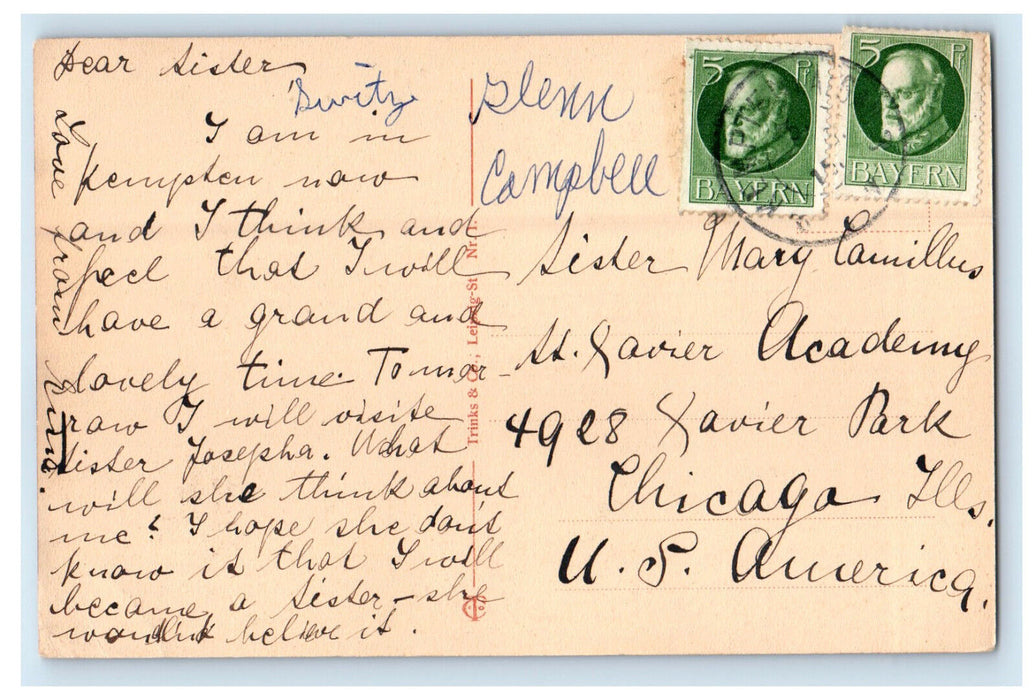 Dear Sister
Switz
I am in
Kempten now
and I think and
feel that I will
have a grand and
lovely time. Tomor-
raw I will visite
Sister Josepha. What
will she think about
me? I hope she don't
know it that I will
became a Sister - she
wouldn't believe it.
Love from
Glenn
Campbell
Trinks & Co., Leipzig-St. Nr.
5 Pf
BAYERN
5 Pf
BAYERN
Sister Mary Camillus
St. Xavier Academy
4928 Xavier Park
Chicago Ills.
U. S. America.